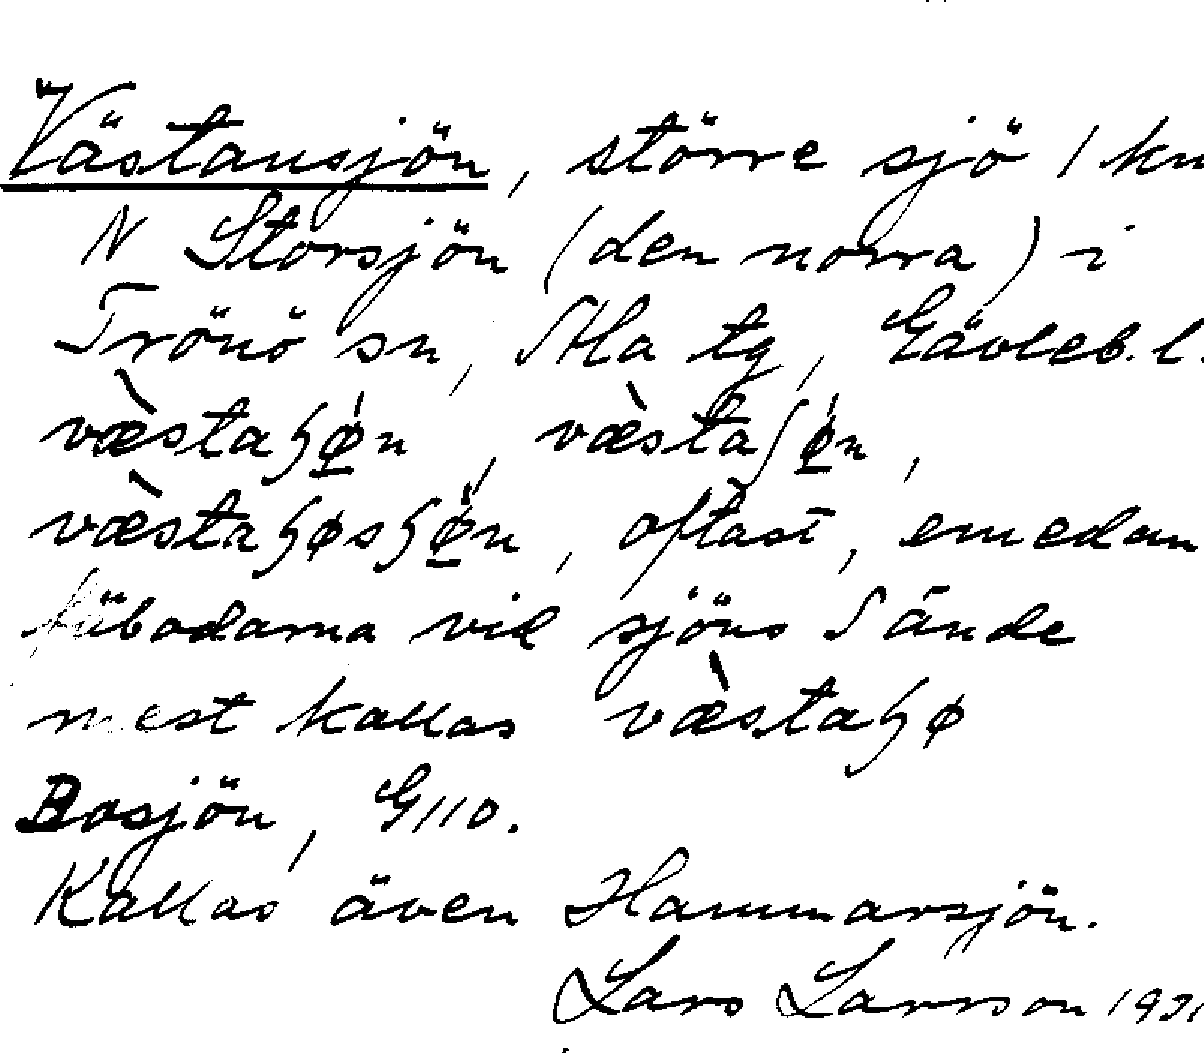 Västansjön, större sjö 1 km
N Storsjön (den norra) i
Trönö sn, Ala tg, Gävleb. l.
væ̀staɧǿ̲n, væ̀staʃǿ̲n,
væ̀staɧøsɧø̲n, oftast, emedan
fäbodarna vid sjöns S ände
mest kallas væ̀staɧø
Bosjön, G110.
Kallas även Hammarsjön.
Lars Larsson 1931